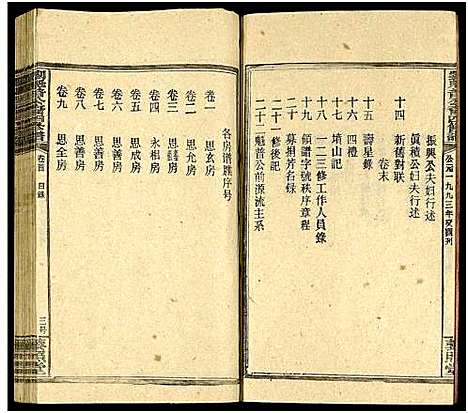 振興公夫妇行述
眞種公夫妇行述
十四 新舊对联
卷末
十五 壽星錄
十六 四禮
十七 墳山記
十八 一二三修工作人員錄
十九 領譜字號秩序章程
二十 募捐芳名録
二十一 修後記
二十二 魁普公前源流主系
公元一九九三年癸酉刊
各房谱牒序号
卷一 思玄房
卷二 思允房
卷三 思 房
卷四 永相房
卷五 思善房
卷六 思善房
卷七 思善房
卷八 思善房
卷九 思 房
卷首 目錄
三号